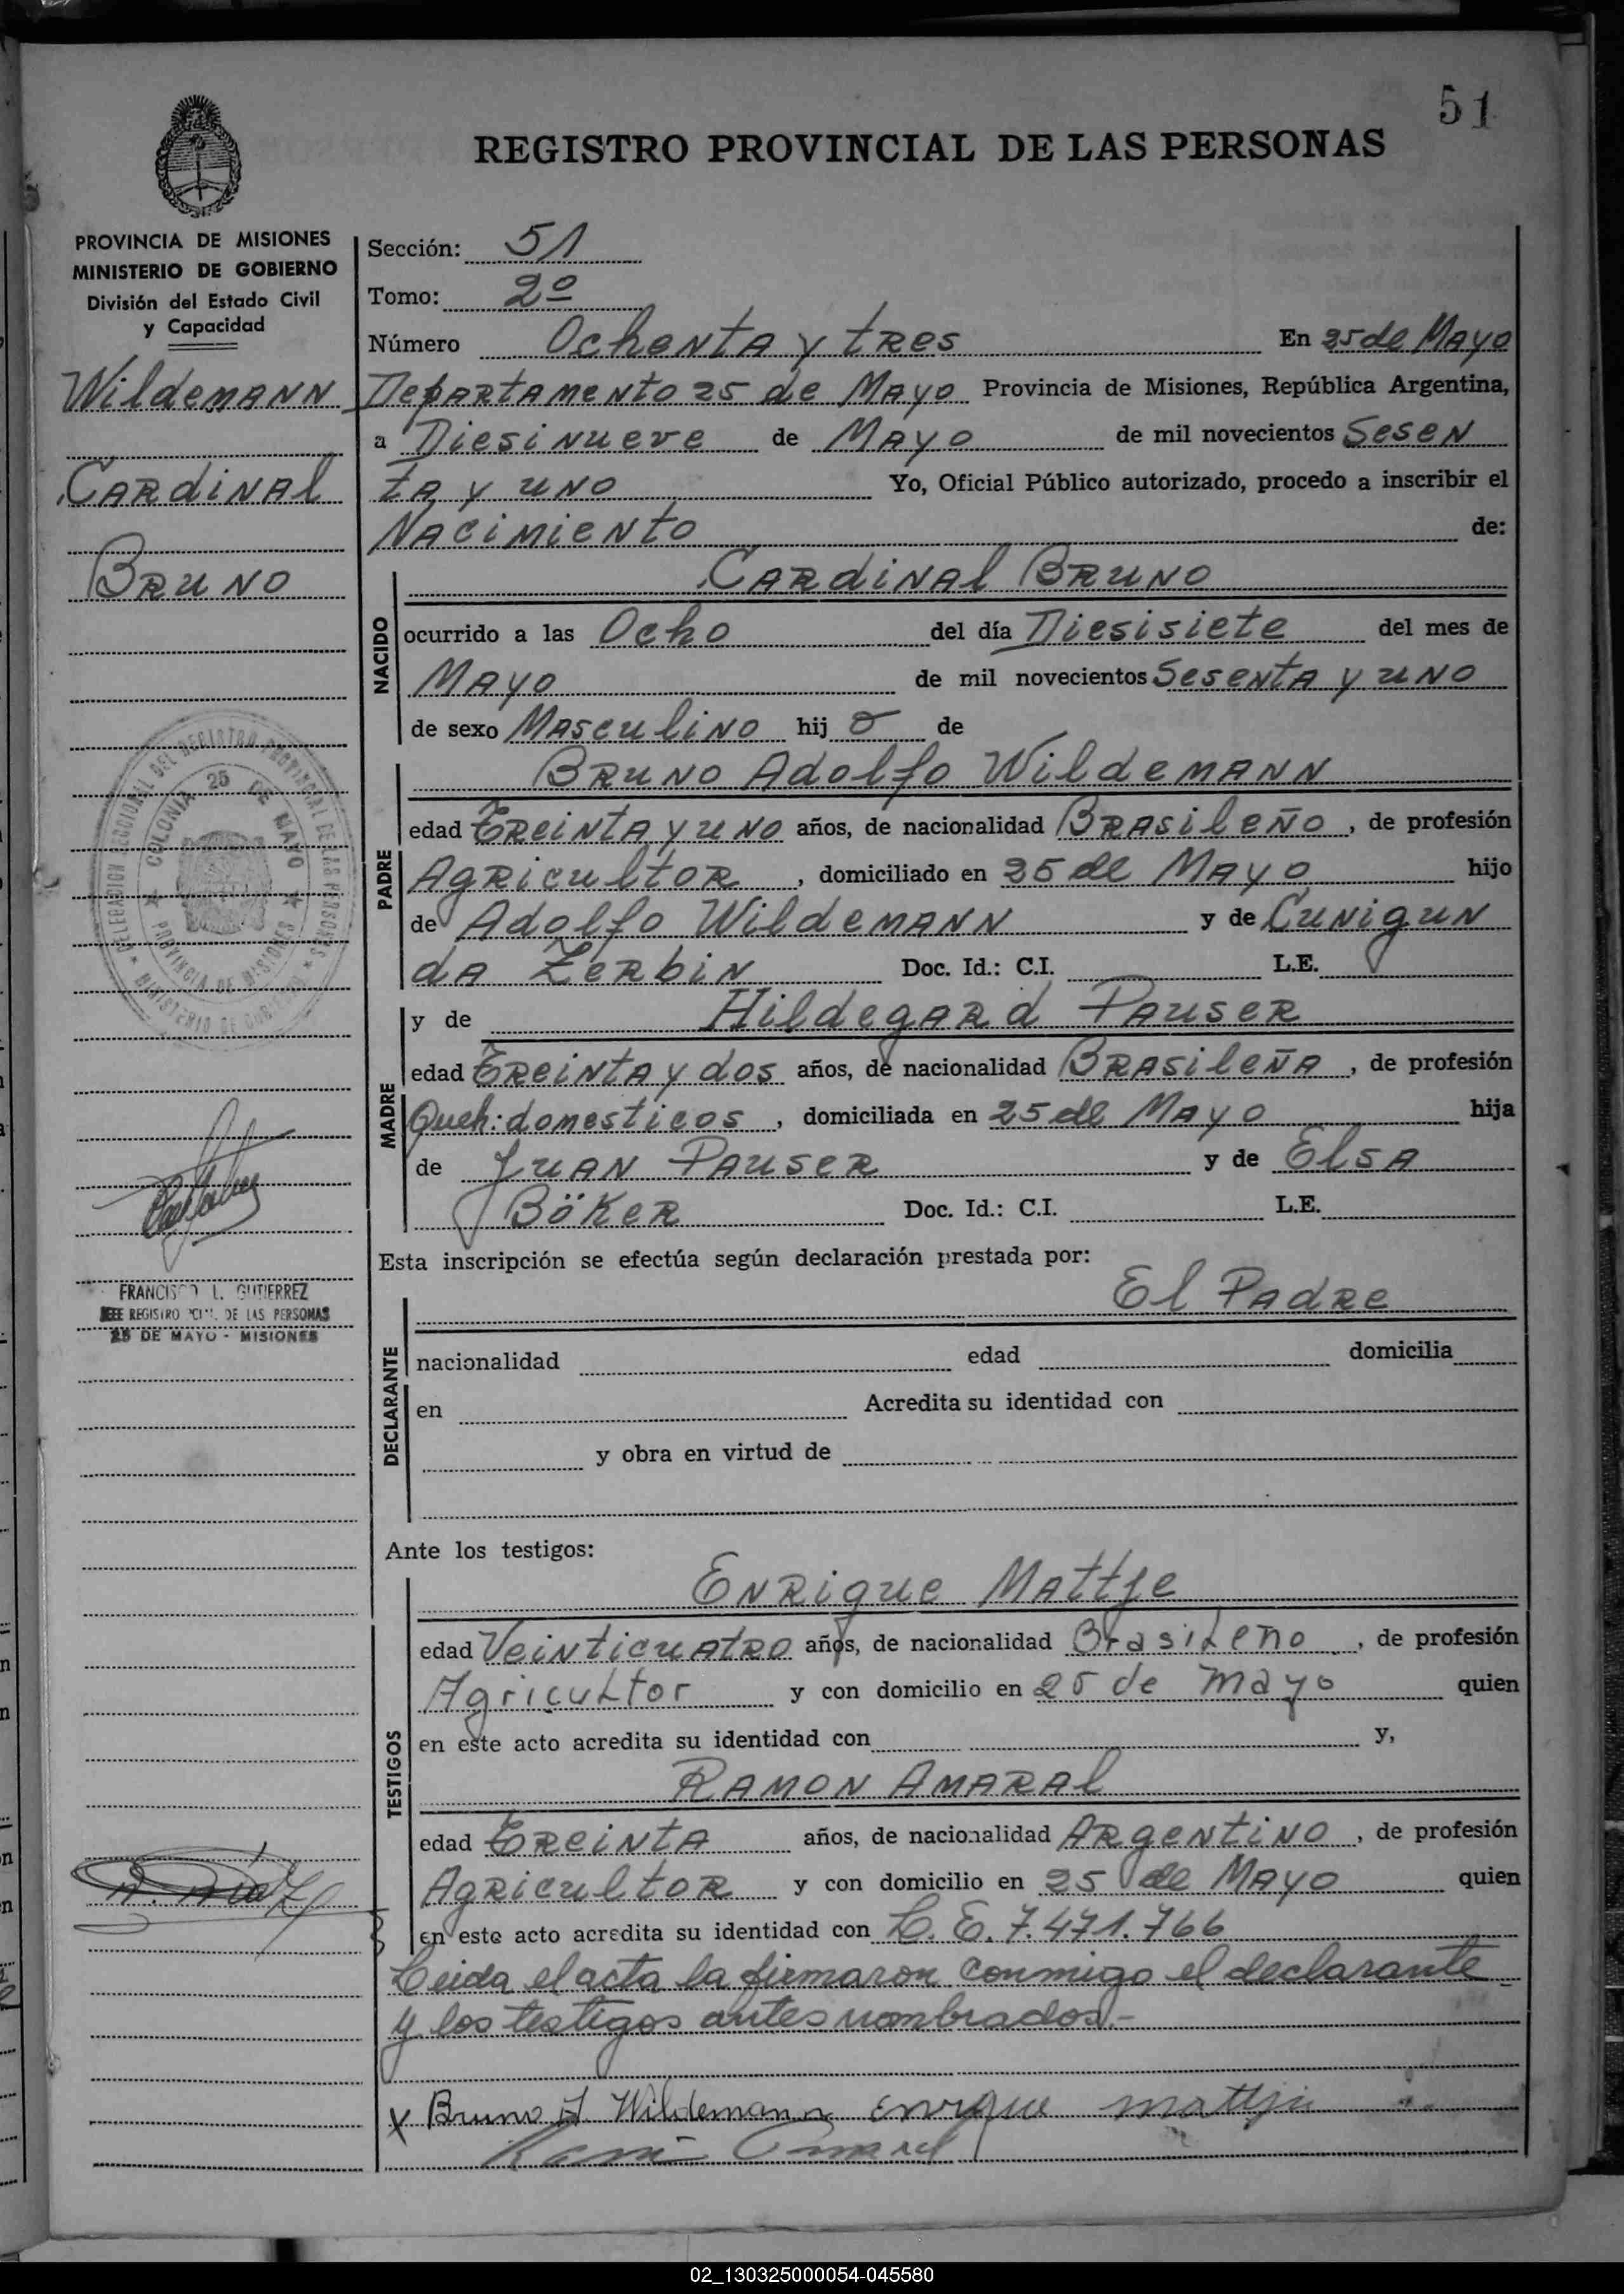 51
REGISTRO PROVINCIAL DE LAS PERSONAS
PROVINCIA DE MISIONES
MINISTERIO DE GOBIERNO
División del Estado Civil
y Capacidad
Wildemann
Cardinal
Bruno
DELEGACION SECCIONAL DEL REGISTRO PROVINCIAL DE LAS PERSONAS
MINISTERIO DE GOBIERNO
COLONIA 25 DE MAYO
PROVINCIA DE MISIONES
FRANCISCO L. GUTIERREZ
JEFE REGISTRO PCIAL. DE LAS PERSONAS
25 DE MAYO - MISIONES
Sección: 51
Tomo: 2º
Número Ochenta y tres En 25 de Mayo
Departamento 25 de Mayo Provincia de Misiones, República Argentina,
a Diesinueve de Mayo de mil novecientos Sesen
ta y uno Yo, Oficial Público autorizado, procedo a inscribir el
Nacimiento de:
NACIDO
Cardinal Bruno
ocurrido a las Ocho del día Diesisiete del mes de
Mayo de mil novecientos Sesenta y uno
de sexo Masculino hij o de
PADRE
Bruno Adolfo Wildemann
edad Treinta y uno años, de nacionalidad Brasileño, de profesión
Agricultor, domiciliado en 25 de Mayo hijo
de Adolfo Wildemann y de Cunigun
da Zerbin Doc. Id.: C.I. L.E.
MADRE
y de Hildegard Pauser
edad Treinta y dos años, de nacionalidad Brasileña, de profesión
Queh: domesticos, domiciliada en 25 de Mayo hija
de Juan Pauser y de Elsa
Böker Doc. Id.: C.I. L.E.
Esta inscripción se efectúa según declaración prestada por:
DECLARANTE
El Padre
nacionalidad edad domicilia
en Acredita su identidad con
y obra en virtud de
Ante los testigos:
TESTIGOS
Enrique Mattje
edad Veinticuatro años, de nacionalidad Brasileño, de profesión
Agricultor y con domicilio en 25 de mayo quien
en este acto acredita su identidad con y,
Ramon Amaral
edad Treinta años, de nacionalidad Argentino, de profesión
Agricultor y con domicilio en 25 de Mayo quien
en este acto acredita su identidad con L.E. 7.471.766
Leida el acta la firmaron conmigo el declarante
y los testigos antes nombrados.-
x Bruno A Wildemann enrique mattje
Ramon Amaral
02_130325000054-045580